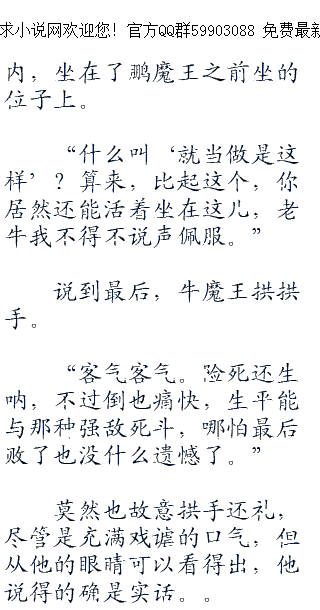 求小说网欢迎您！官方QQ群59903088 免费最新
内，坐在了鹏魔王之前坐的
位子上。
“什么叫‘就当做是这
样’？算来，比起这个，你
居然还能活着坐在这儿，老
牛我不得不说声佩服。”
说到最后，牛魔王拱拱
手。
“客气客气。险死还生
呐，不过倒也痛快，生平能
与那种强敌死斗，哪怕最后
败了也没什么遗憾了。”
莫然也故意拱手还礼，
尽管是充满戏谑的口气，但
从他的眼睛可以看得出，他
说得的确是实话。。